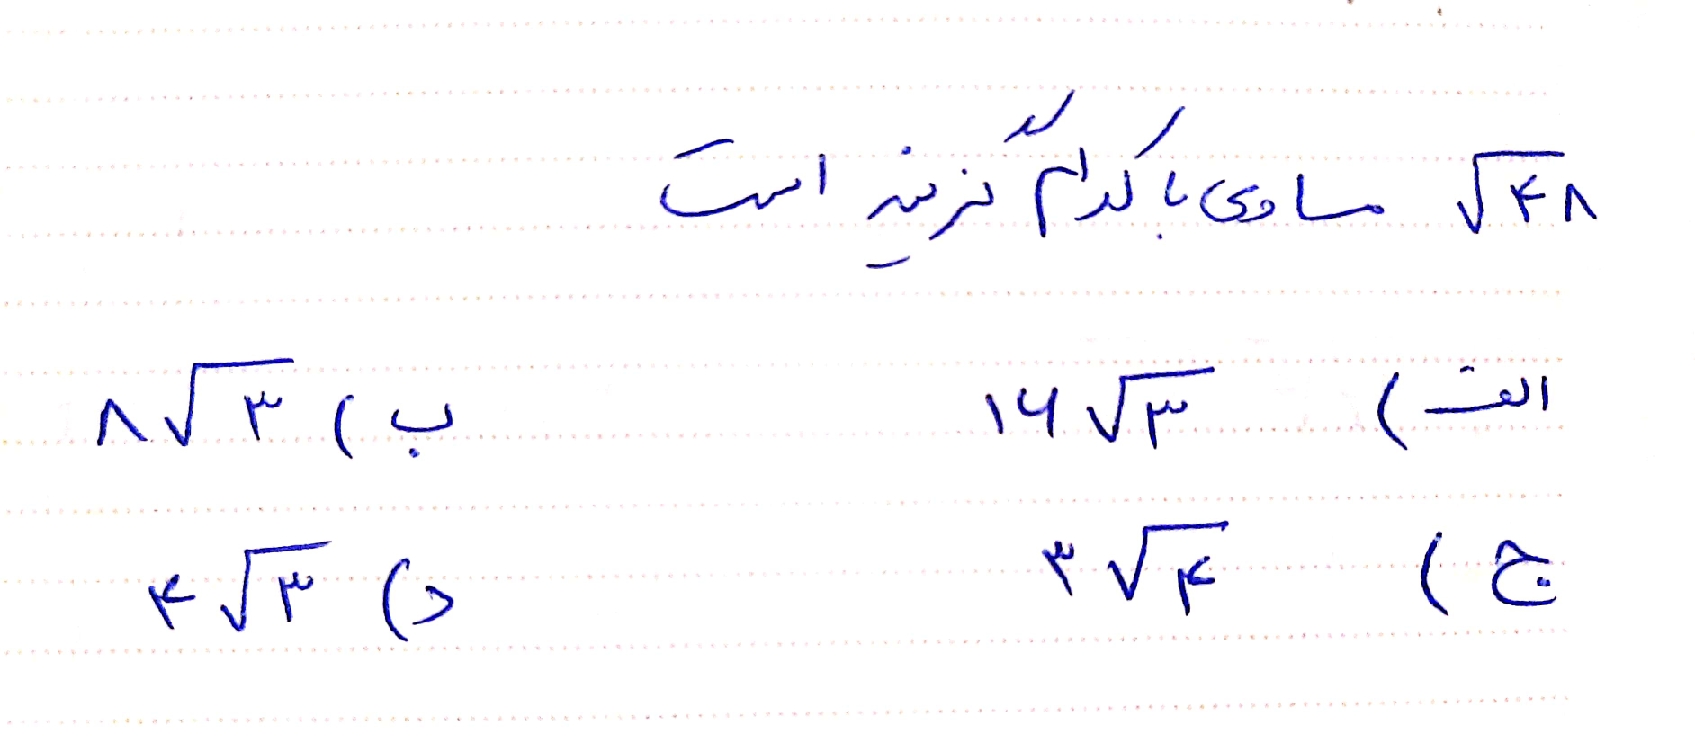 √۴۸ مساوی با کدام گزینه است
الف) ۱۶√۳ ب) ۸√۳
ج) ۳√۴ د) ۴√۳